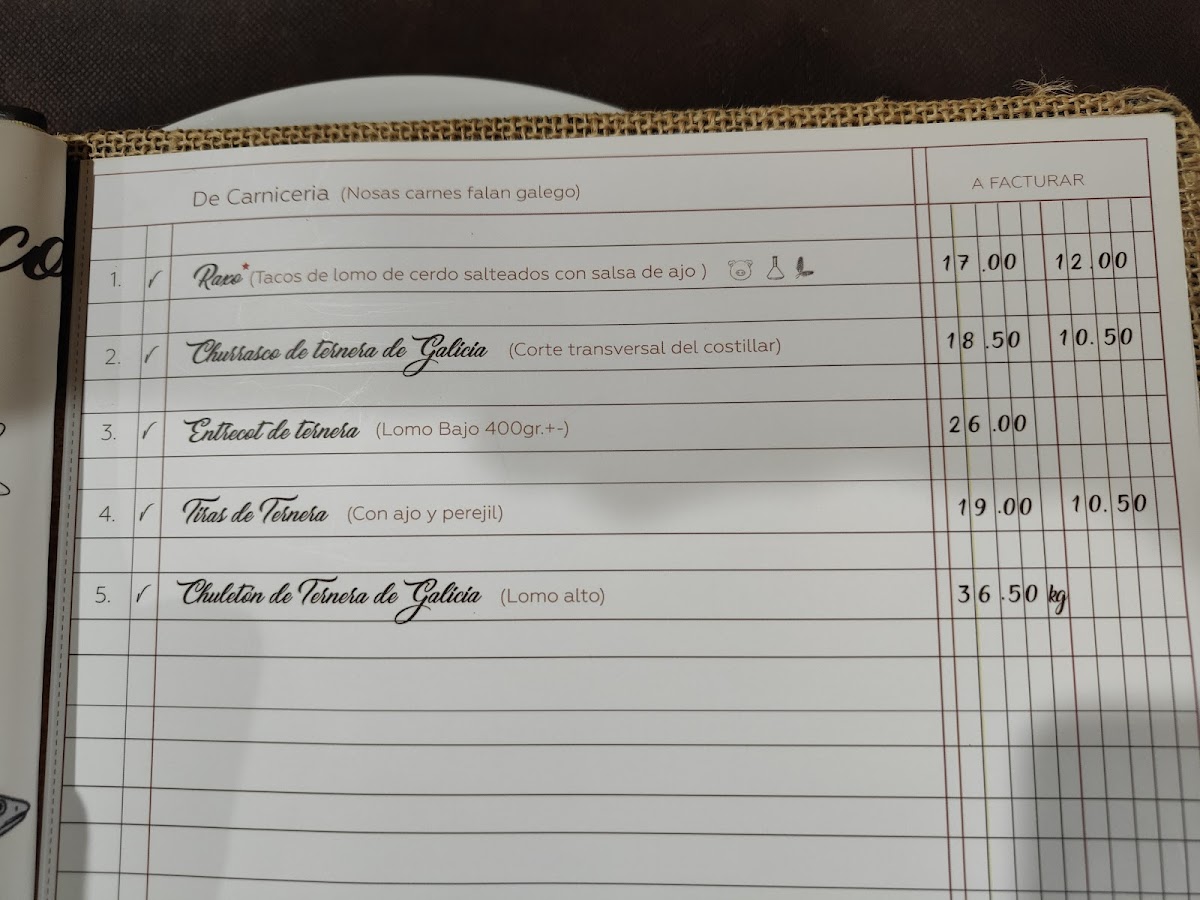 co
De Carniceria (Nosas carnes falan galego)
A FACTURAR
1. ✓ Raxo* (Tacos de lomo de cerdo salteados con salsa de ajo ) 17.00 12.00
2. ✓ Churrasco de ternera de Galicia (Corte transversal del costillar) 18.50 10.50
3. ✓ Entrecot de ternera (Lomo Bajo 400gr.+-) 26.00
4. ✓ Tiras de Ternera (Con ajo y perejil) 19.00 10.50
5. ✓ Chuletòn de Ternera de Galicia (Lomo alto) 36.50 kg